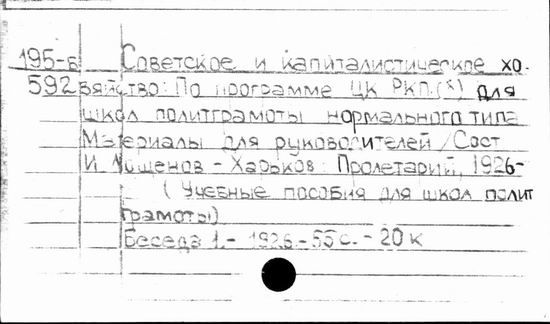 195-б Советское и капиталистическое хо-
592 зяйство: По программе ЦК РКП(б) для
школ политграмоты нормального типа
Материалы для руководителей / Сост
И - Харьков: Пролетарий, 1926-
(Учебные пособия для школ полит
грамоты)
Беседа 1. - 1926. - 55 с. - 20 к